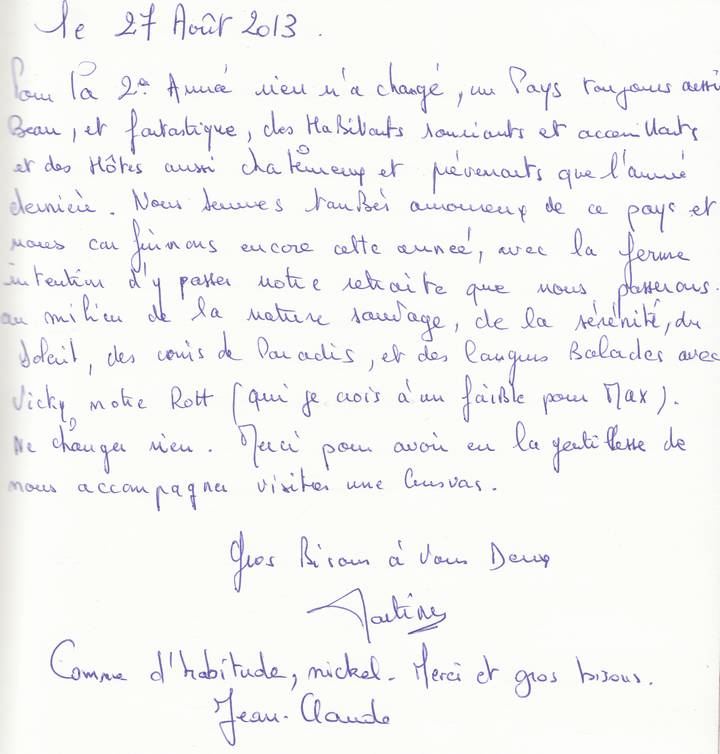 le 27 Août 2013.
Pour la 2e Année rien n'a changé, un Pays toujours aussi
Beau, et fantastique, des Habitants souriants et accueillants
et des Hôtes aussi chaleureux et prévenants que l'année
dernière. Nous sommes tombés amoureux de ce pays et
nous confirmons encore cette année, avec la ferme
intention d'y passer notre retraite que nous passerons.
au milieu de la nature sauvage, de la sérénité, du
Soleil, des coins de Paradis, et des longues Balades avec
Vicky notre Rott (qui je crois à un faible pour Max).
Ne changer rien. Merci pour avoir eu la gentillesse de
nous accompagner visiter une Cuevas.
Gros Bisous à Vous Deux
Martine
Comme d'habitude, nickel. Merci et gros bisous.
Jean-Claude